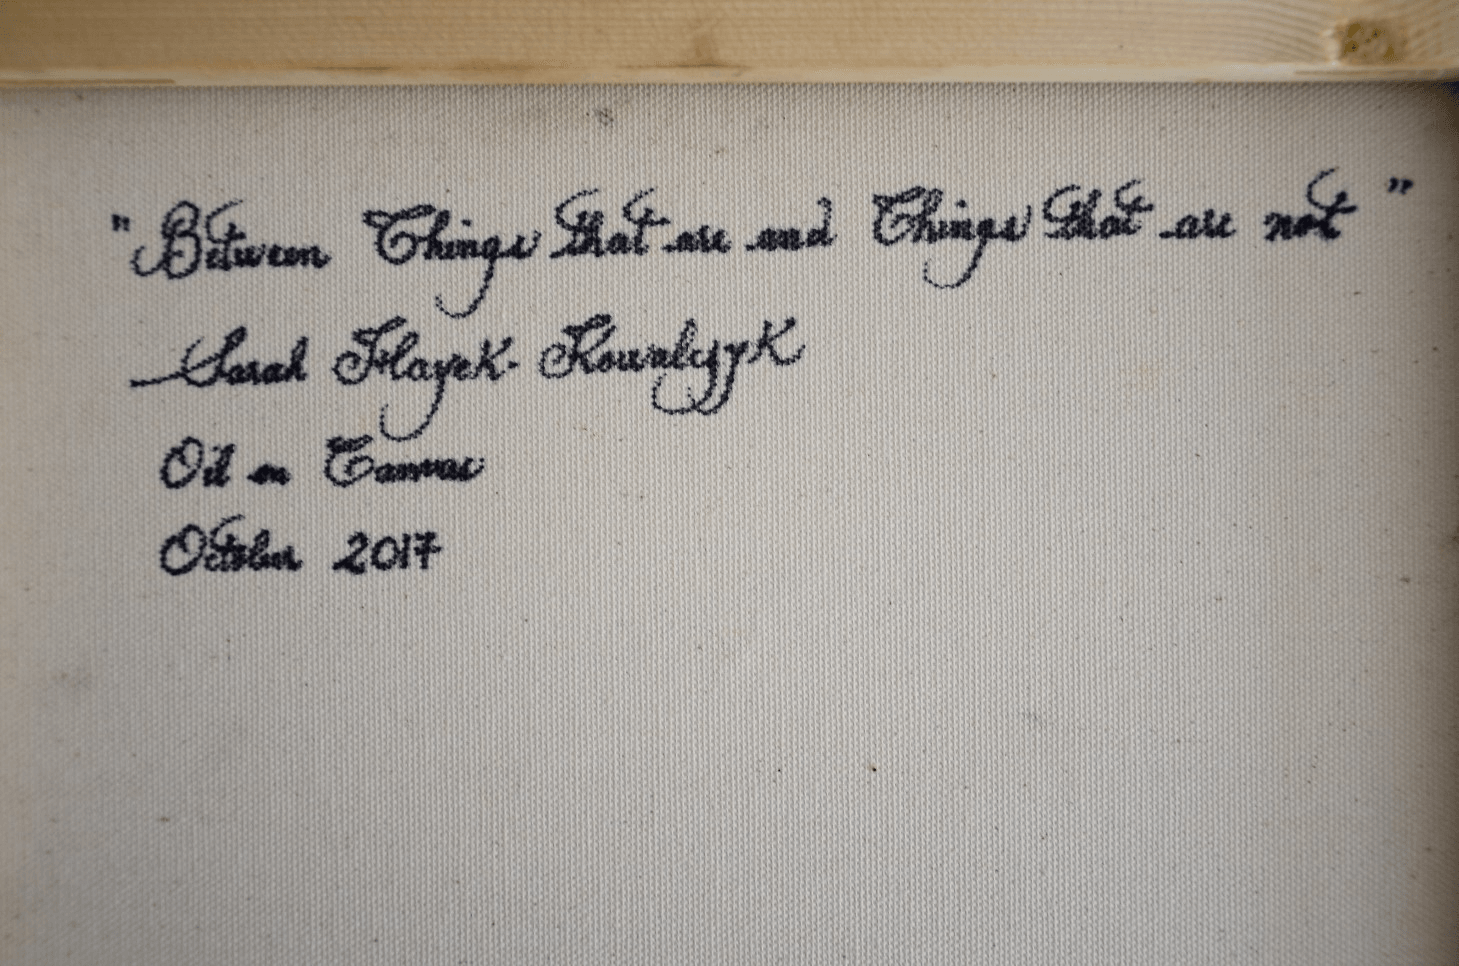 "Between Things that are and Things that are not"
Sarah Hayek-Kowalczyk
Oil on Canvas
October 2017